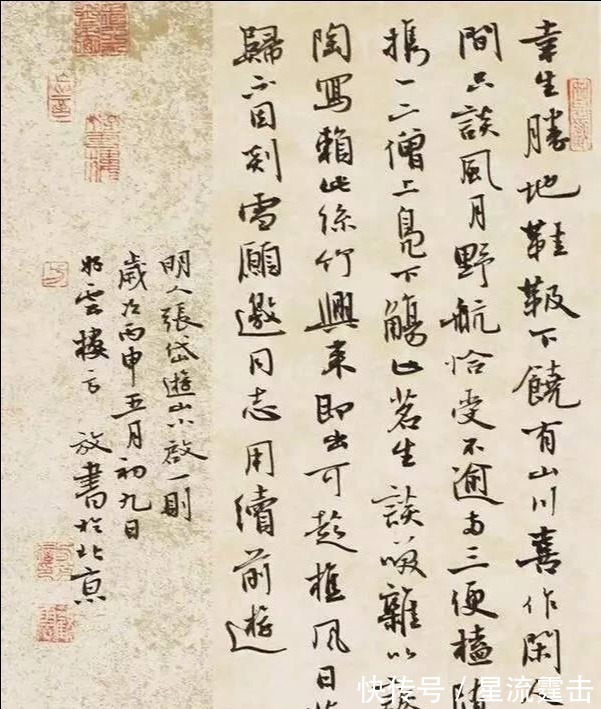 幸生勝地鞋靸下饒有山川喜作閑人
間只談風月野航恰受不逾兩三便榼
攜一二僧上鳧下觴止茗生談咲雜以
陶寫賴此絲竹興來即出可趁樵風日
歸不因剡雪願邀同志用續前遊
明人張岱遊山小啟一則
歲次丙申五月初九日
雲樓方放書於北京
快传号 / 星流霆击